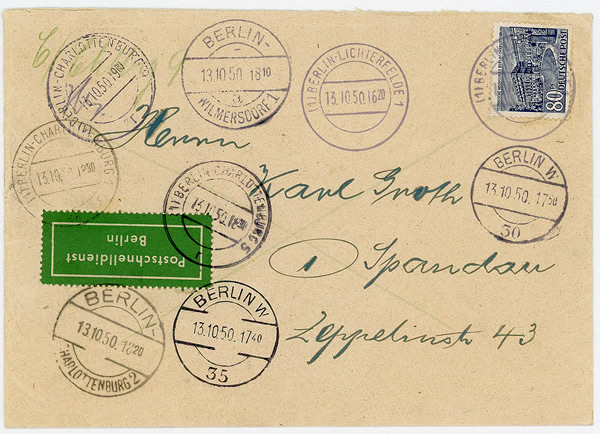 BERLIN-
13.10.50. 1810
a
WILMERSDORF 1
(1) BERLIN-LICHTERFELDE 1
13.10.50.1620
(1) BERLIN
80
DEUTSCHE POST
(1) BERLIN-CHARLOTTENBURG 9
13.10.50.
(1) BERLIN-CHARLOTTENBURG
13.10.50.
(1) BERLIN-CHARLOTTENBURG 5
13.10.50.
BERLIN W
13.10.50. 1750
30
Herrn
Karl Groth
1 Spandau
Zeppelinstr 43
Postschnelldienst
Berlin
BERLIN-
13.10.50. 1820
CHARLOTTENBURG 2
BERLIN W
13.10.50. 1740
35